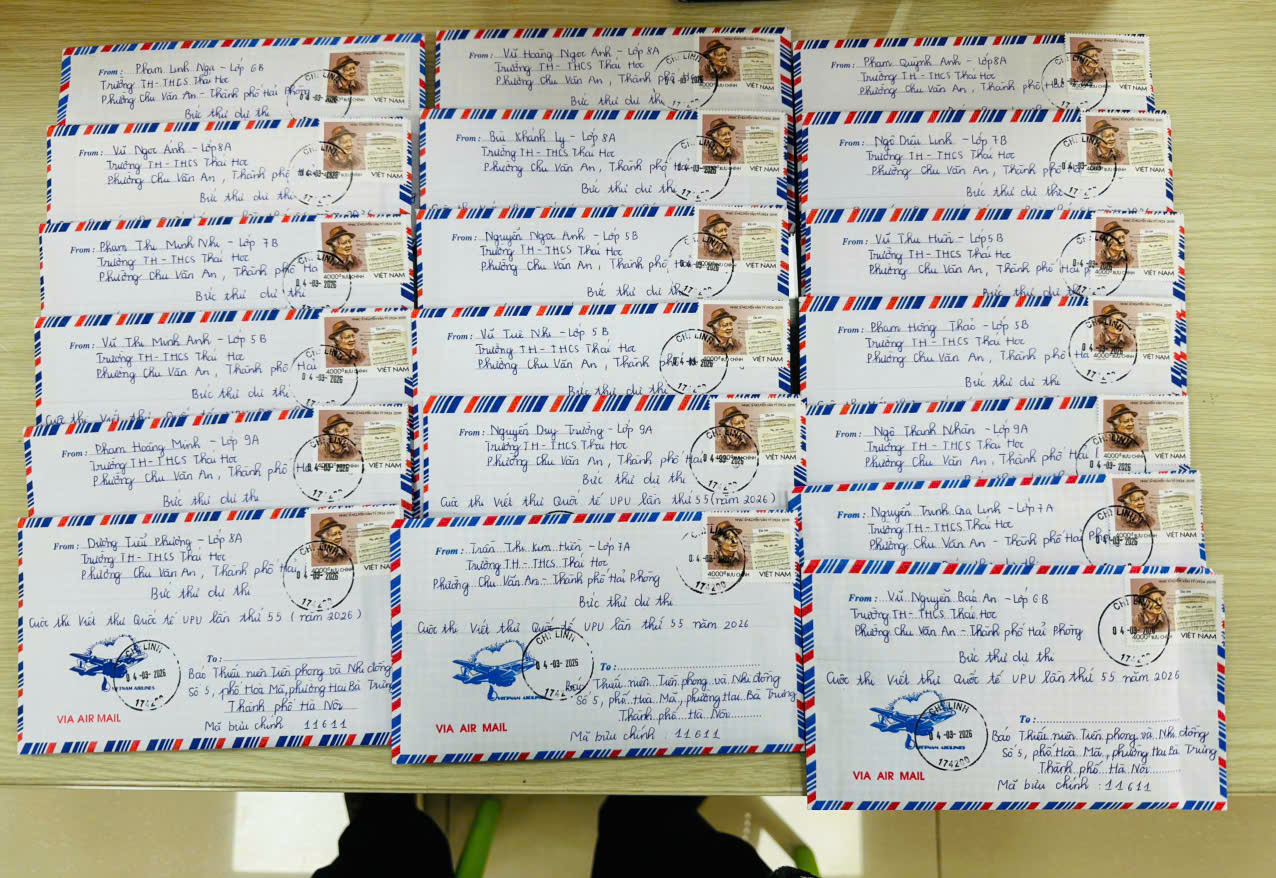 From: Phạm Linh Nga - Lớp 6B
Trường TH-THCS Thái Học
Phường Chu Văn An - Thành phố Hải Phòng
Bức thư dự thi
CHI LINH
04-03-2026
4000đ BƯU CHÍNH VIỆT NAM
From: Vũ Ngọc Anh - Lớp 8A
Trường TH-THCS Thái Học
Phường Chu Văn An, Thành phố
Bức thư dự thi
CHI LINH
04-03-2026
VIỆT NAM
From: Phạm Thị Minh Nhi - Lớp 7B
Trường TH-THCS Thái Học
Phường Chu Văn An, Thành phố Hả
Bức thư dự thi
04-03-2026
4000đ BƯU CHÍNH VIỆT NAM
From: Vũ Thị Minh Anh - Lớp 5B
Trường TH-THCS Thái Học
Phường Chu Văn An, Thành phố Hải
Bức thư dự thi
CHI LINH
04-03-2026
VIỆT NAM
From: Phạm Hoàng Minh - Lớp 9A
Trường TH-THCS Thái Học
Phường Chu Văn An, Thành phố Hải
Bức thư dự thi
CHI LINH
04-03-2026
VIỆT NAM
From: Dương Tiểu Phương - Lớp 8A
Trường TH-THCS Thái Học
Phường Chu Văn An, Thành phố Hải
Bức thư dự thi
CHI LINH
04-03-2026
174200
4000đ BƯU CHÍNH VIỆT NAM
Cuộc thi Viết thư Quốc tế UPU lần thứ 55 (năm 2026)
CHI LINH
04-03-2026
174200
VIETNAM AIRLINES
VIA AIR MAIL
To:
Báo Thiếu niên Tiền phong và Nhi đồng
Số 5, phố Hoà Mã, phường Hai Bà Trưng
Thành phố Hà Nội
Mã bưu chính 11611
From: Vũ Hoàng Ngọc Anh - Lớp 8A
Trường TH-THCS Thái Học
Phường Chu Văn An, Thành phố Hải
Bức thư dự thi
CHI LINH
4000đ BƯU CHÍNH VIỆT NAM
From: Bùi Khánh Ly - Lớp 8A
Trường TH-THCS Thái Học
Phường Chu Văn An, Thành phố
Bức thư dự thi
CHI LINH
04-03-2026
VIỆT NAM
From: Nguyễn Ngọc Anh - Lớp 5B
Trường TH-THCS Thái Học
Phường Chu Văn An, Thành phố
Bức thư dự thi
CHI LINH
04-03-2026
VIỆT NAM
From: Vũ Tuệ Nhi - Lớp 5B
Trường TH-THCS Thái Học
Phường Chu Văn An, Thành phố
Bức thư dự thi
CHI LINH
04-03-2026
4000đ BƯU CHÍNH VIỆT NAM
From: Nguyễn Duy Trường - Lớp 9A
Trường TH-THCS Thái Học
Phường Chu Văn An, Thành phố Hải
Bức thư dự thi
CHI LINH
04-03-2026
VIỆT NAM
Cuộc thi Viết thư Quốc tế UPU lần thứ 55 (năm 2026)
From: Trần Thị Kim Hiền - Lớp 7A
Trường TH-THCS Thái Học
Phường Chu Văn An - Thành phố Hải Phòng
Bức thư dự thi
04-03-2026
174200
4000đ BƯU CHÍNH VIỆT NAM
Cuộc thi Viết thư Quốc tế UPU lần thứ 55 năm 2026
CHI LINH
04-03-2026
174200
VIETNAM AIRLINES
VIA AIR MAIL
To:
Báo Thiếu niên Tiền phong và Nhi đồng
Số 5, phố Hoà Mã, phường Hai Bà Trưng
Thành phố Hà Nội
Mã bưu chính: 11611
From: Phạm Quỳnh Anh - Lớp 8A
Trường TH-THCS Thái Học
Phường Chu Văn An, Thành phố Hải
Bức thư dự thi
CHI LINH
04-03-2026
4000đ BƯU CHÍNH VIỆT NAM
From: Ngô Diệu Linh - Lớp 7B
Trường TH-THCS Thái Học
Phường Chu Văn An, Thành phố Hải
Bức thư dự thi
CHI LINH
04-03-2026
VIỆT NAM
From: Vũ Thu Hiền - Lớp 5B
Trường TH-THCS Thái Học
Phường Chu Văn An, Thành phố Hải
Bức thư dự thi
CHI LINH
04-03-2026
4000đ BƯU CHÍNH VIỆT NAM
From: Phạm Hồng Thảo - Lớp 5B
Trường TH-THCS Thái Học
Phường Chu Văn An, Thành phố Hải
Bức thư dự thi
CHI LINH
04-03-2026
VIỆT NAM
From: Ngô Thành Nhân - Lớp 9A
Trường TH-THCS Thái Học
Phường Chu Văn An, Thành phố Hải
Bức thư dự thi
CHI LINH
04-03-2026
VIỆT NAM
From: Nguyễn Trịnh Gia Linh - Lớp 7A
Trường TH-THCS Thái Học
Phường Chu Văn An, Thành phố Hải
Bức thư dự thi
CHI LINH
04-03-2026
VIỆT NAM
From: Vũ Nguyễn Bảo An - Lớp 6B
Trường TH-THCS Thái Học
Phường Chu Văn An - Thành phố Hải Phòng
Bức thư dự thi
CHI LINH
BƯU CHÍNH VIỆT NAM
Cuộc thi Viết thư Quốc tế UPU lần thứ 55 năm 2026
CHI LINH
04-03-2026
174200
VIETNAM AIRLINES
VIA AIR MAIL
To:
Báo Thiếu niên Tiền phong và Nhi đồng
Số 5, phố Hoà Mã, phường Hai Bà Trưng
Thành phố Hà Nội
Mã bưu chính: 11611